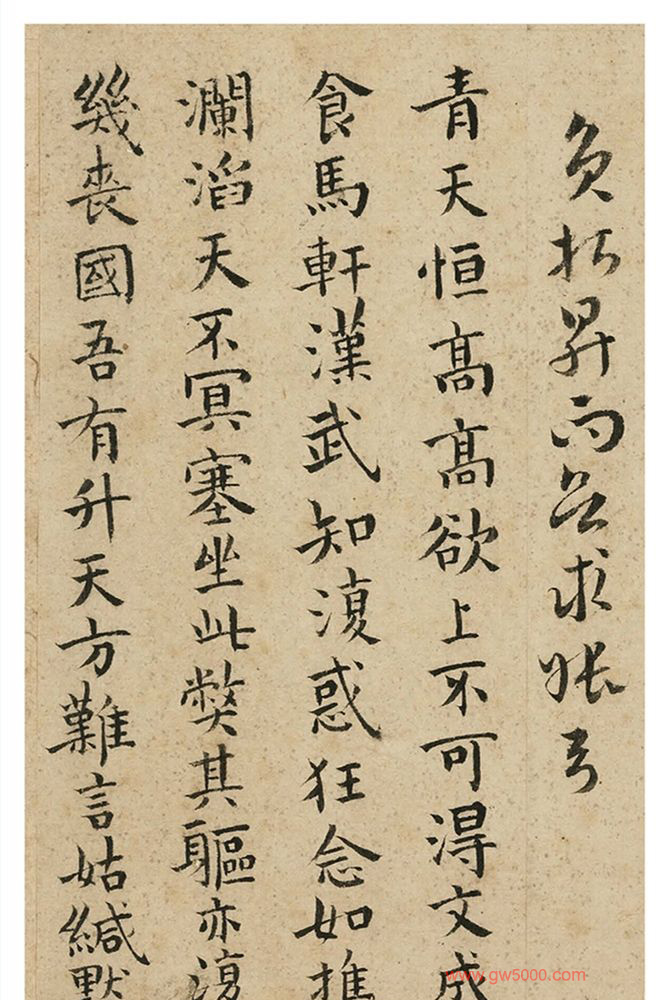 求
青天恒髙髙欲上不可淂文成
食馬軒漢武知復惑狂念如推
瀾滔天不冥塞坐此獘其軀亦復
幾喪國吾有升天方難言姑緘默
www.gw5000.com